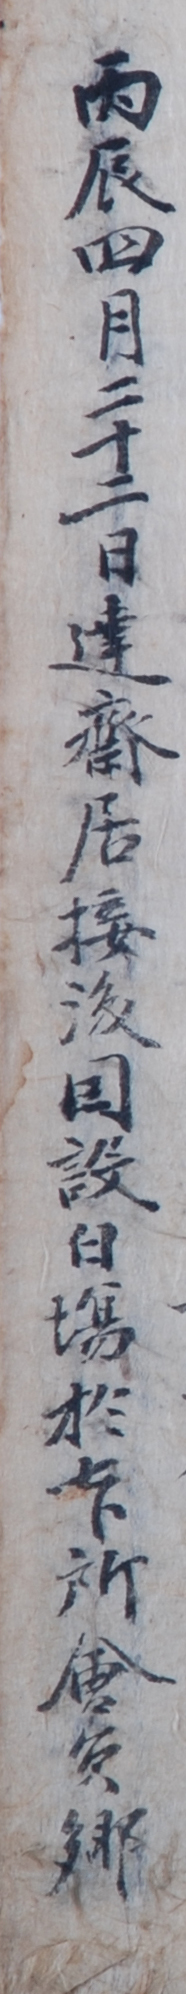 丙辰四月二十二日達齋居接後因設白塲於下所會員鄉